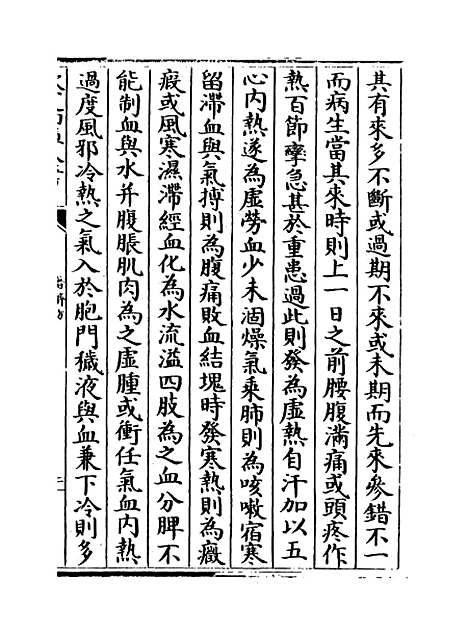 其有來多不斷或過期不來或未期而先來參錯不一
而病生當其來時則上一日之前腰腹滿痛或頭疼作
熱百節攣急甚於重患過此則發為虛熱自汗加以五
心內熱遂為虛勞血少未涸燥氣乘肺則為咳嗽宿寒
留滯血與氣摶則為腹痛敗血結塊時發寒熱則為癥
瘕或風寒濕滯經血化為水流溢四肢為之血分脾不
能制血與水并腹脹肌肉為之虛腫或衝任氣血内熱
過度風邪冷熱之氣入於胞門穢液與血兼下冷則多